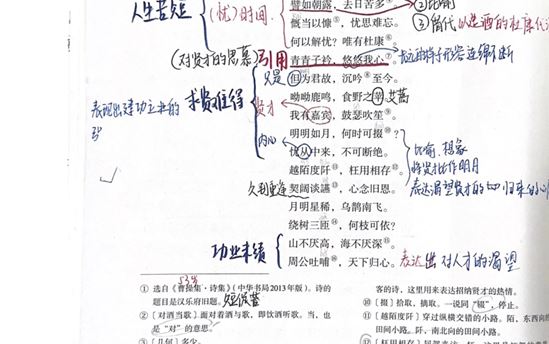 人生苦短
(忧)时间
譬如朝露,去日苦多
慨当以慷,忧思难忘。
③借代
何以解忧?唯有杜康⑥。
(对贤才的思慕)引用
青青子衿,悠悠我心⑦。
只是
但为君故,沉吟⑧至今。
呦呦鹿鸣,食野之苹。艾蒿
表现出建功立业的
求贤难得
贤才
我有嘉宾,鼓瑟吹笙。
明明如月,何时可掇⑩?
比喻、想象
内心
忧从中来,不可断绝。
将贤才比作明月
越陌度阡⑪,枉用相存⑫。
表达渴望贤才的
久别重逢
契阔谈䜩⑬,心念旧恩。
月明星稀,乌鹊南飞。
绕树三匝⑭,何枝可依?
功业未绩
山不厌高,海不厌深⑮。
周公吐哺⑯,天下归心。
表达出对人才的渴望
① 选自《曹操集·诗集》(中华书局2013年版)。诗的
题目是汉乐府旧题。短歌行
② 〔对酒当歌〕面对着酒与歌,即饮酒听歌。当,也
是“对”的意思。
③ 〔几何〕多少。
客的诗,这里用来表达招纳贤才的热情。
⑩ 〔掇〕拾取,摘取。一说同“辍”,停止。
⑪ 〔越陌度阡〕穿过纵横交错的小路。陌,东西向的
田间小路。阡,南北向的田间小路。